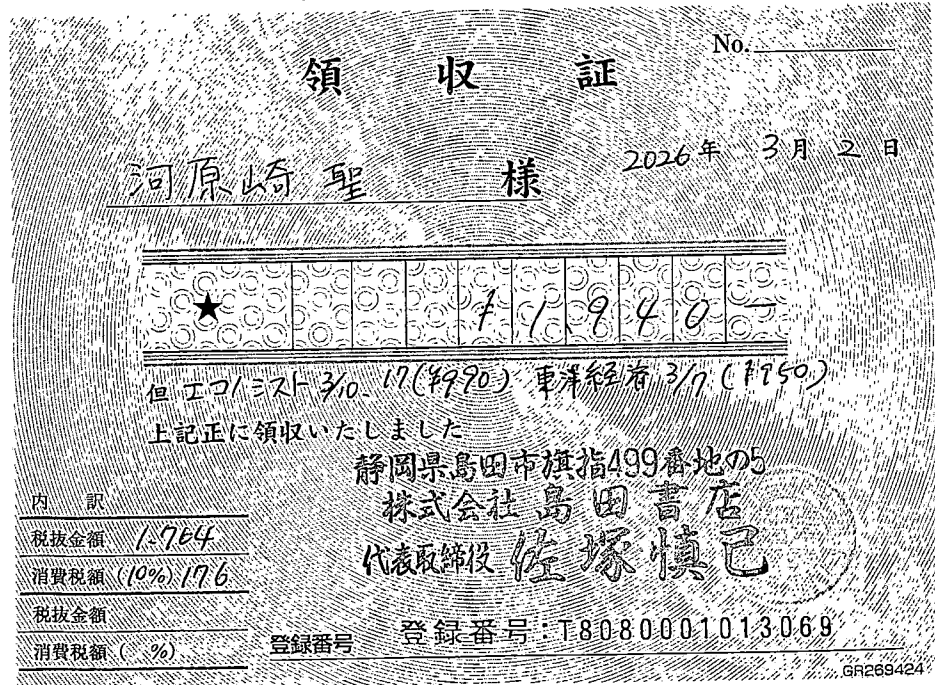 No.
領収証
河原崎 聖 様
2026年 3月 2日
★ ¥1,940-
但 エコノミスト 3/10. 17(¥990) 東洋経済 3/7 (¥950)
上記正に領収いたしました
静岡県島田市旗指499番地の5
株式会社 島田書店
代表取締役 佐塚慎己
内 訳
税抜金額 1,764
消費税額 (10%) 176
税抜金額
消費税額 ( %)
登録番号 登録番号:T8080001013069
GR269424